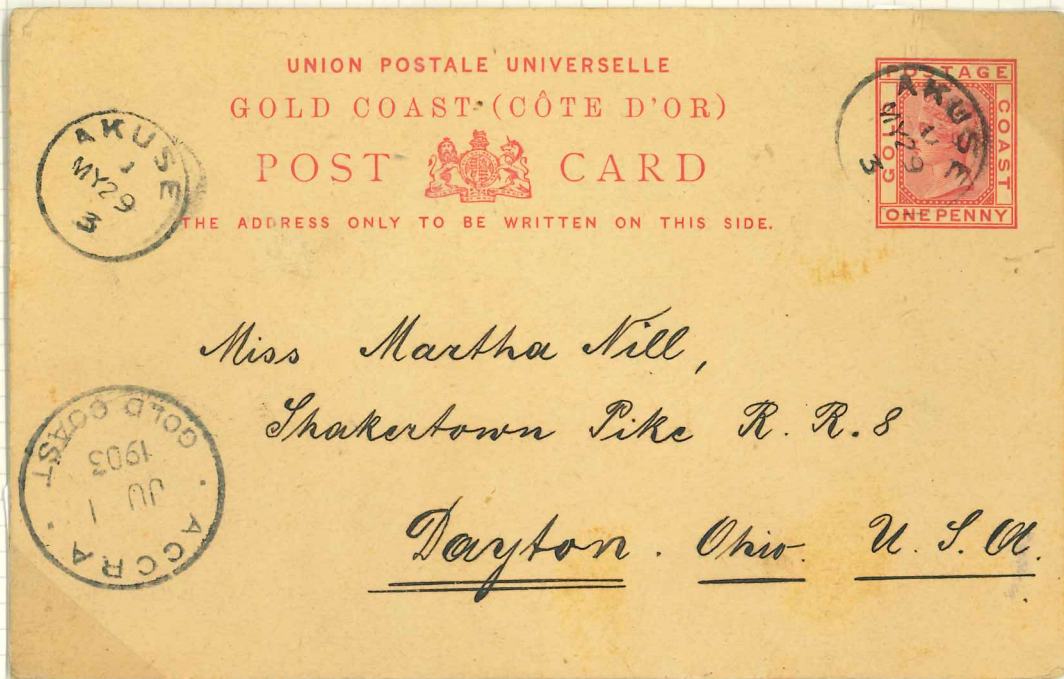 UNION POSTALE UNIVERSELLE
GOLD COAST (CÔTE D'OR)
POST CARD
THE ADDRESS ONLY TO BE WRITTEN ON THIS SIDE.
POSTAGE
GOLD COAST
ONE PENNY
AKUSE
MY 29
3
AKUSE
MY 29
3
Miss Martha Nill,
Shakertown Pike R. R. 8
Dayton. Ohio. U. S. A.
GOLD COAST
1903
JU 1
ACCRA